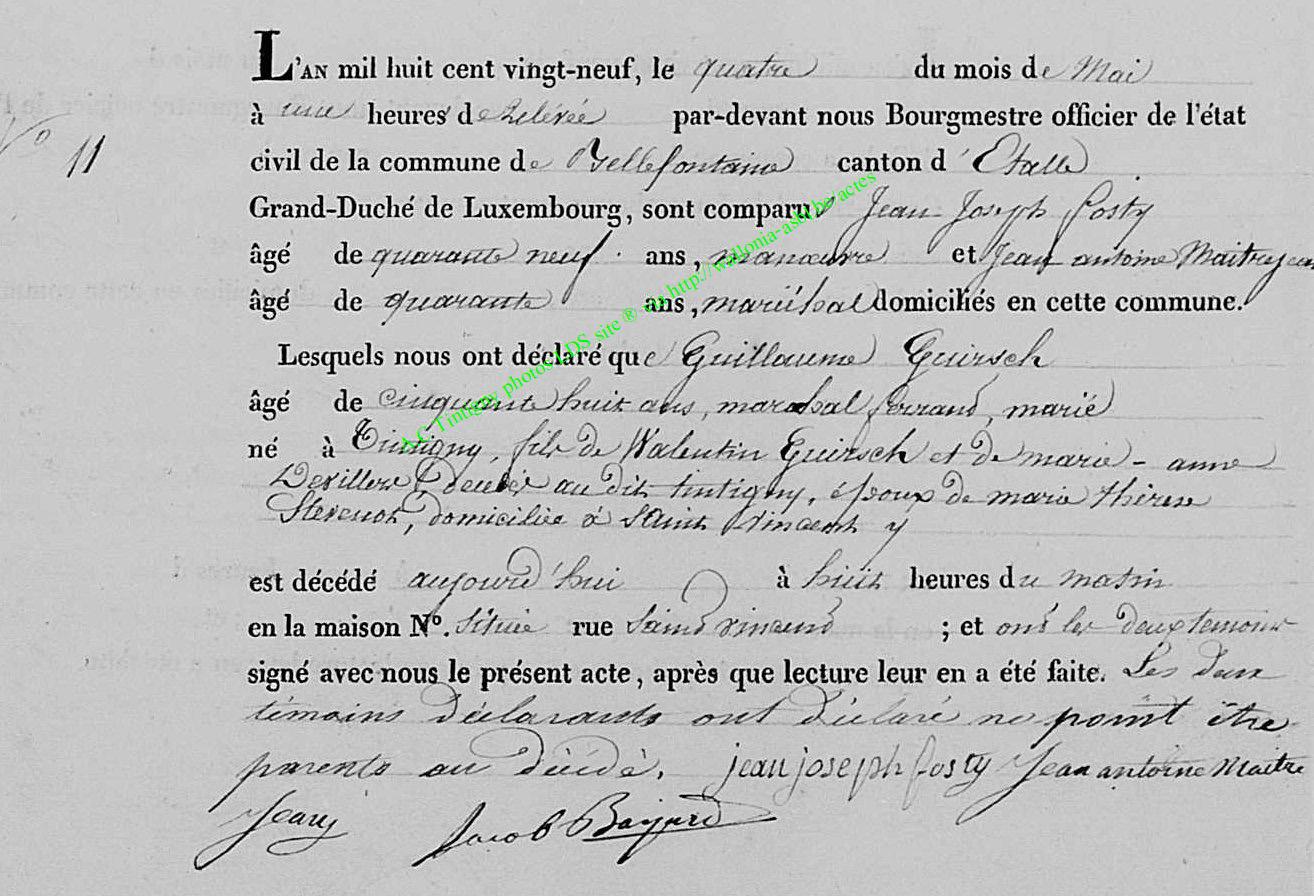 L'AN mil huit cent vingt-neuf, le quatre du mois de Mai
à une heures de relevée par-devant nous Bourgmestre officier de l'état
No 11
civil de la commune de Bellefontaine canton d'Etalle
Grand-Duché de Luxembourg, sont comparus Jean Joseph Fosty
âgé de quarante neuf ans, manœuvre et Jean antoine Maitrejean
âgé de quarante ans, maréchal domiciliés en cette commune.
Lesquels nous ont déclaré que Guillaume Guirsch
âgé de cinquante huit ans, marechal ferrand, marié
né à Tintigny, fils de Walentin Guirsch et de marie - anne
Devillers décédés au dit tintigny, époux de marie thérese
Stevenot, domiciliée à Saint vincent
est décédé aujourd'hui à huit heures du matin
en la maison No. située rue Saind vincend ; et ont les deux temoins
signé avec nous le présent acte, après que lecture leur en a été faite. Les deux
témoins déclarants ont déclaré ne point être
parents au décédé. jean joseph fosty Jean antoine Maitre
Jean Jacob Bayard
A.C. Tintigny photos LDS site ® du http://wallonia-asbl.be/actes